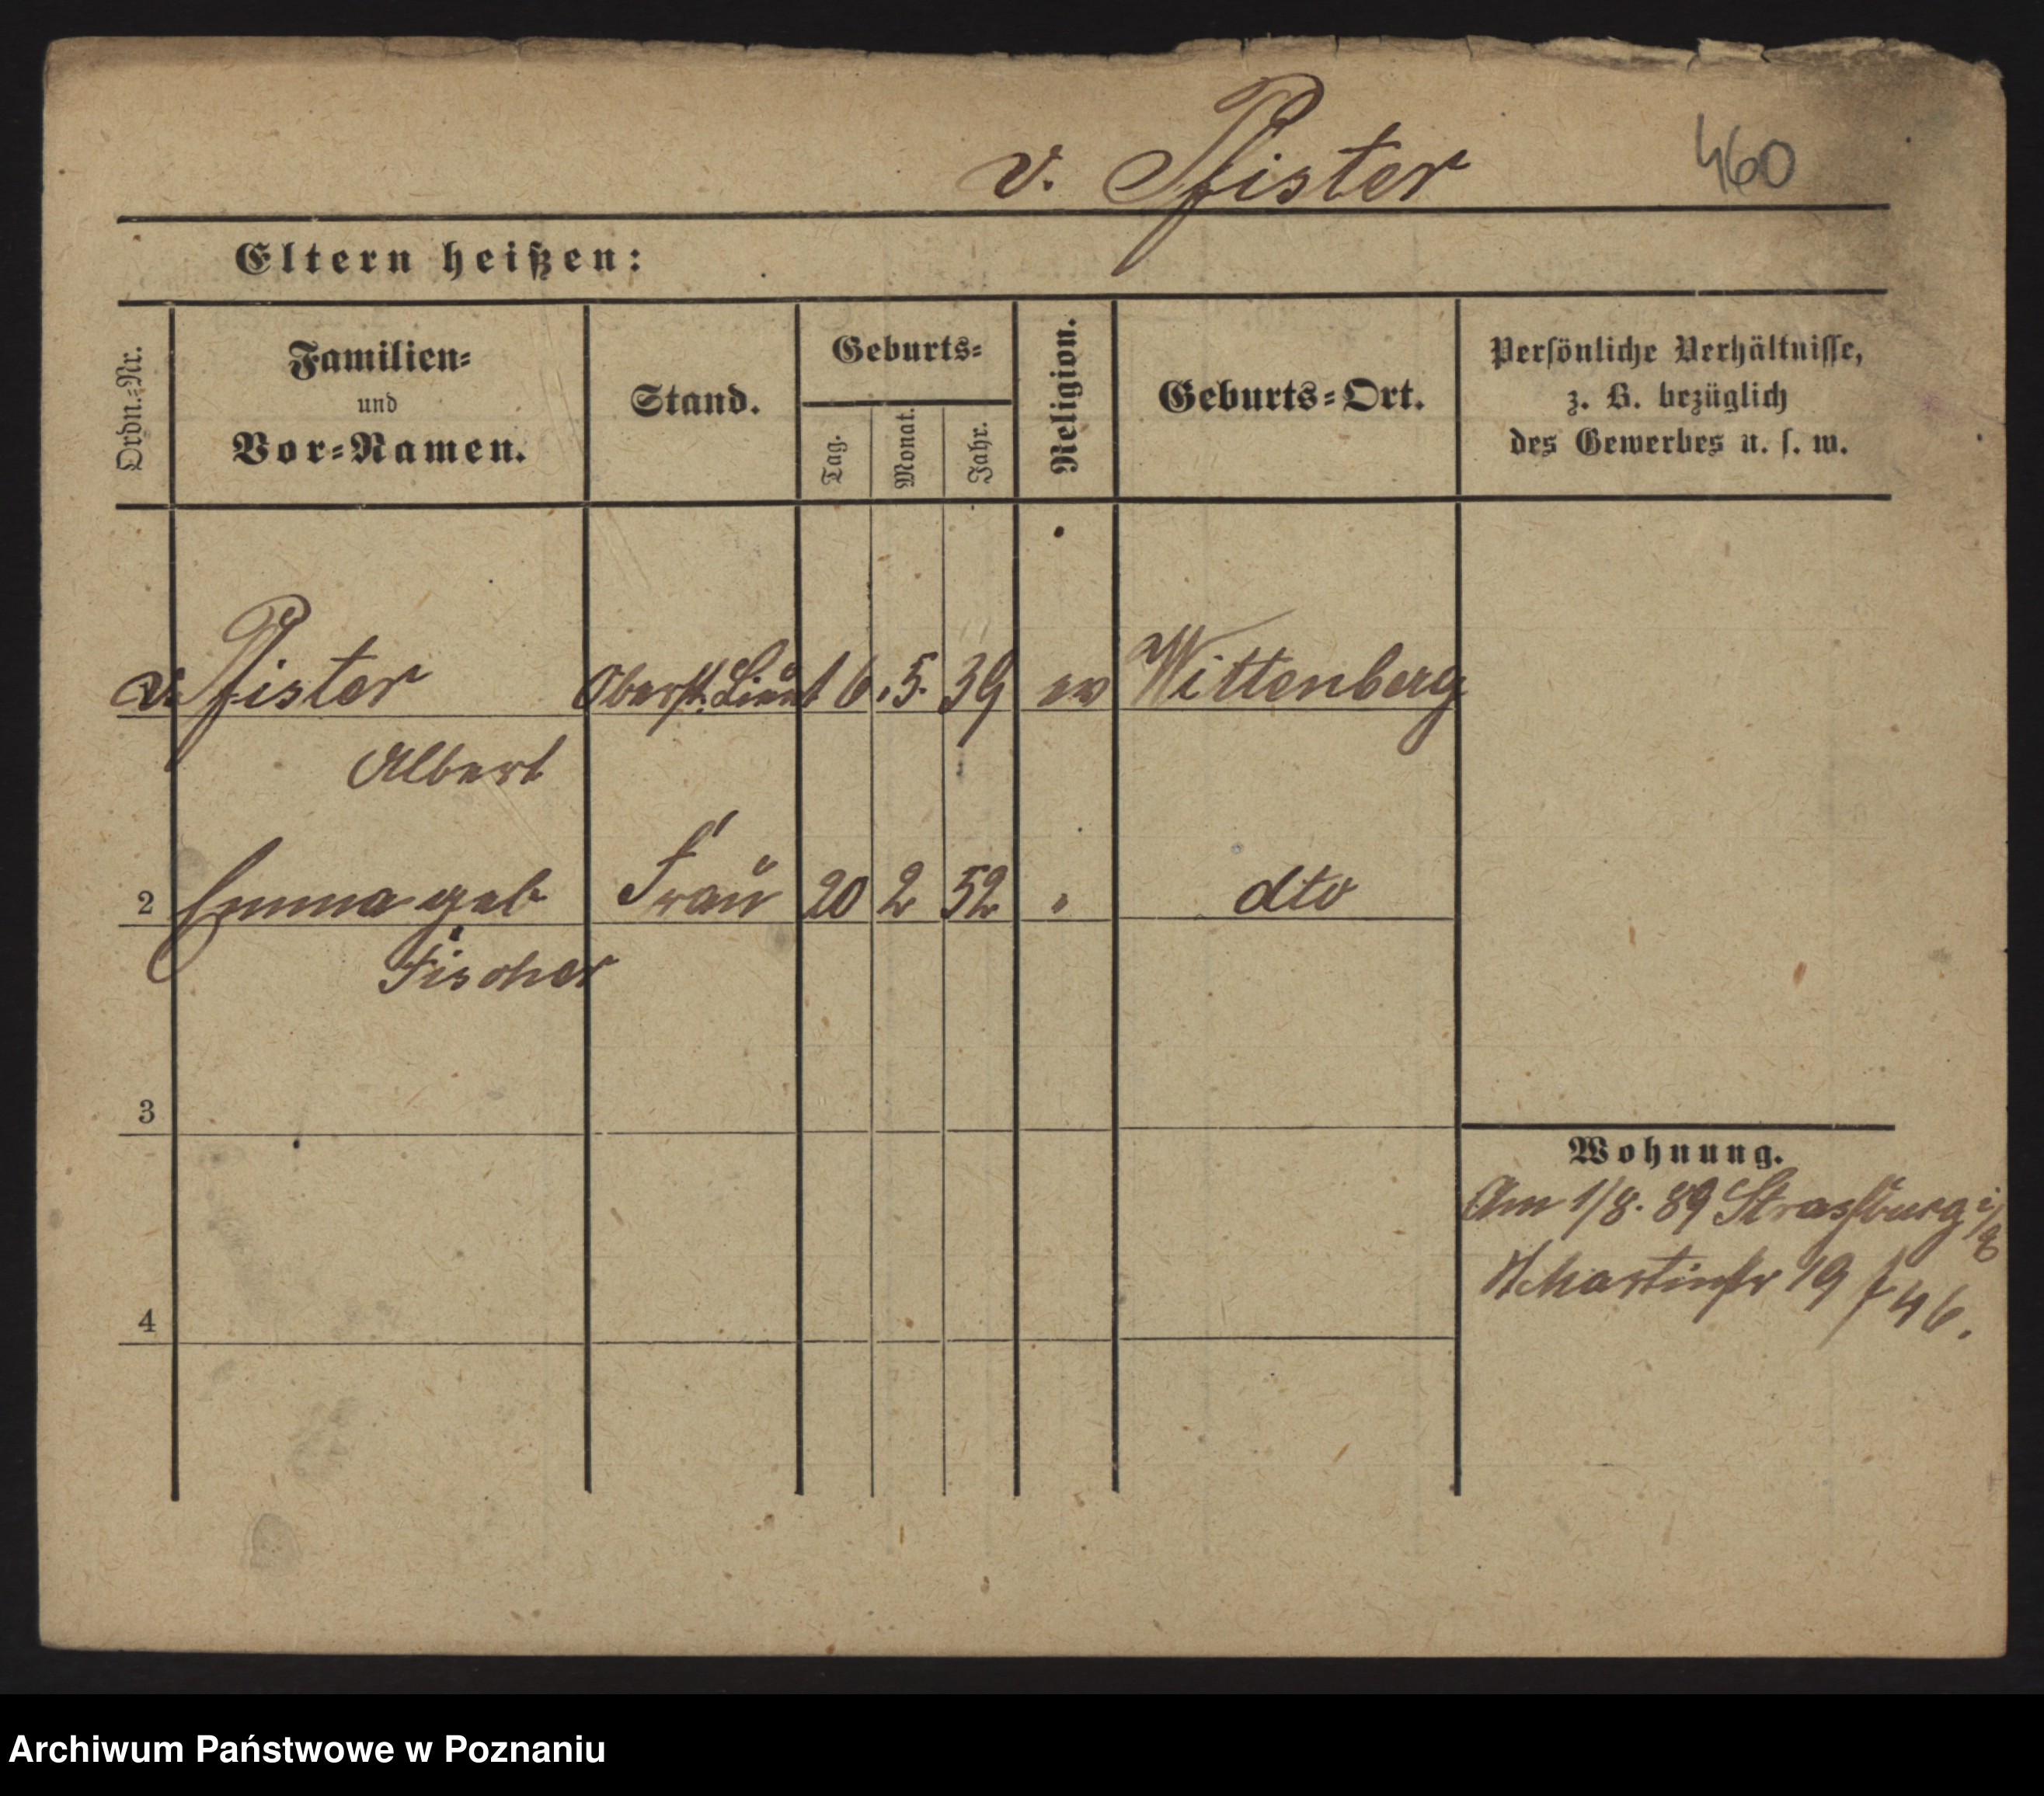 v. Pfister 460
Eltern heißen:
Ordn.-Nr.
Familien-
und
Vor-Namen.
Stand.
Geburts-
Tag.
Monat.
Jahr.
Religion.
Geburts-Ort.
Persönliche Verhältnisse,
z. B. bezüglich
des Gewerbes u. s. w.
v. Pfister Oberst. Lieut 6. 5. 39 ev Wittenberg
Albert
2 Emma geb Frau 20 2 52 " dto
Fischer
3
Wohnung.
Am 1/8. 89 Strassburg i/E
Martinstr 19 f 46.
4
Archiwum Państwowe w Poznaniu